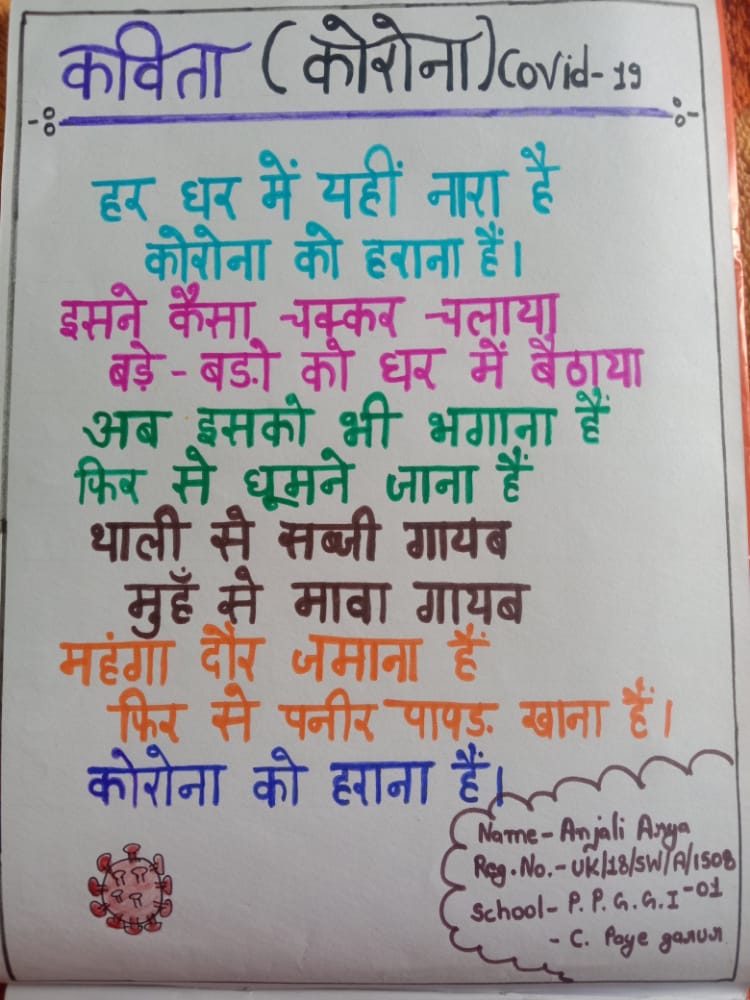 कविता (कोरोना) Covid-19
हर धर में यहीं नारा है
कोरोना को हराना हैं।
इसने कैसा चक्कर चलाया
बड़े - बड़ो को धर में बैठाया
अब इसको भी भगाना हैं
फिर से धूमने जाना हैं
थाली से सब्जी गायब
मुहँ से मावा गायब
महंगा दौर जमाना हैं
फिर से पनीर पापड़ खाना हैं।
कोरोना को हराना हैं।
Name - Anjali Arya
Reg. No. - UK/18/SW/A/1508
School - P. P. G. G. I - 01
- C. Paye